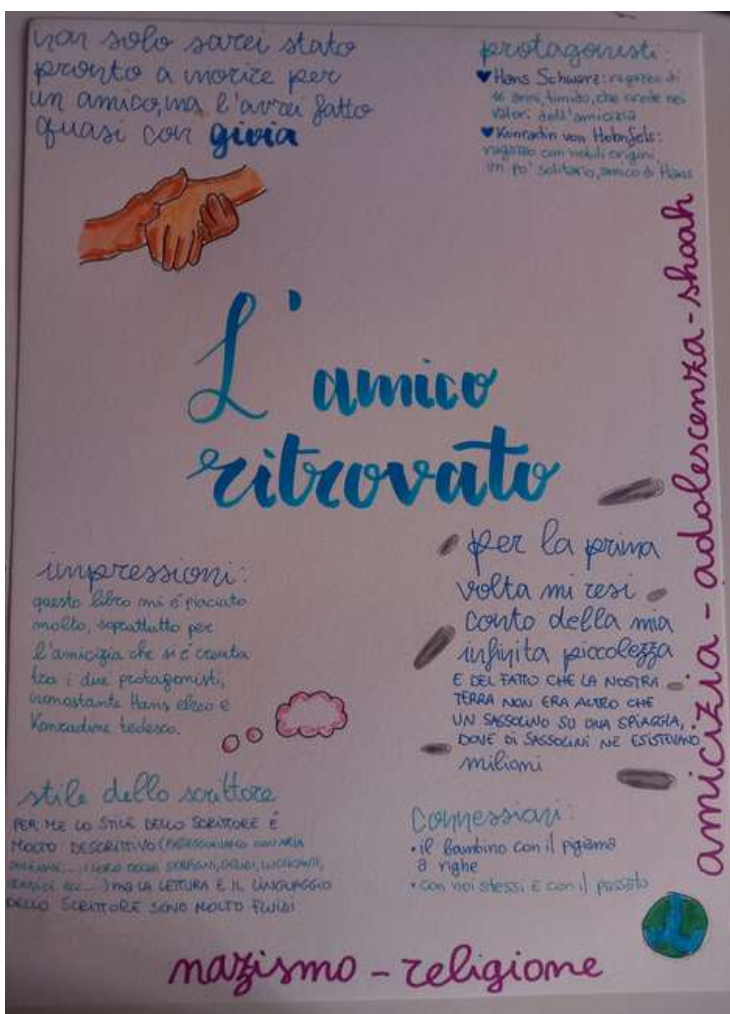 non solo sarei stato
pronto a morire per
un amico, ma l'avrei fatto
quasi con gioia
protagonisti:
Hans Schwarz: ragazzo di
16 anni, timido, che crede nei
valori dell'amicizia
Konradin von Hohnfels:
ragazzo con nobili origini,
un po' solitario, amico di Hans
L'amico
ritrovato
amicizia - adolescenza - shoah
impressioni:
questo libro mi è piaciuto
molto, soprattutto per
l'amicizia che si è creata
tra i due protagonisti,
nonostante Hans ebreo e
Konradin tedesco.
per la prima
volta mi resi
conto della mia
infinita piccolezza
E DEL FATTO CHE LA NOSTRA
TERRA NON ERA ALTRO CHE
UN SASSOLINO SU UNA SPIAGGIA,
DOVE DI SASSOLINI NE ESISTEVANO
milioni
stile dello scrittore
PER ME LO STILE DELLO SCRITTORE È
MOLTO DESCRITTIVO
ECC...) MA LA LETTURA E IL LINGUAGGIO
DELLO SCRITTORE SONO MOLTO FLUIDI
Connessioni:
• il bambino con il pigiama
a righe
• con noi stessi e con il passato
nazismo - religione